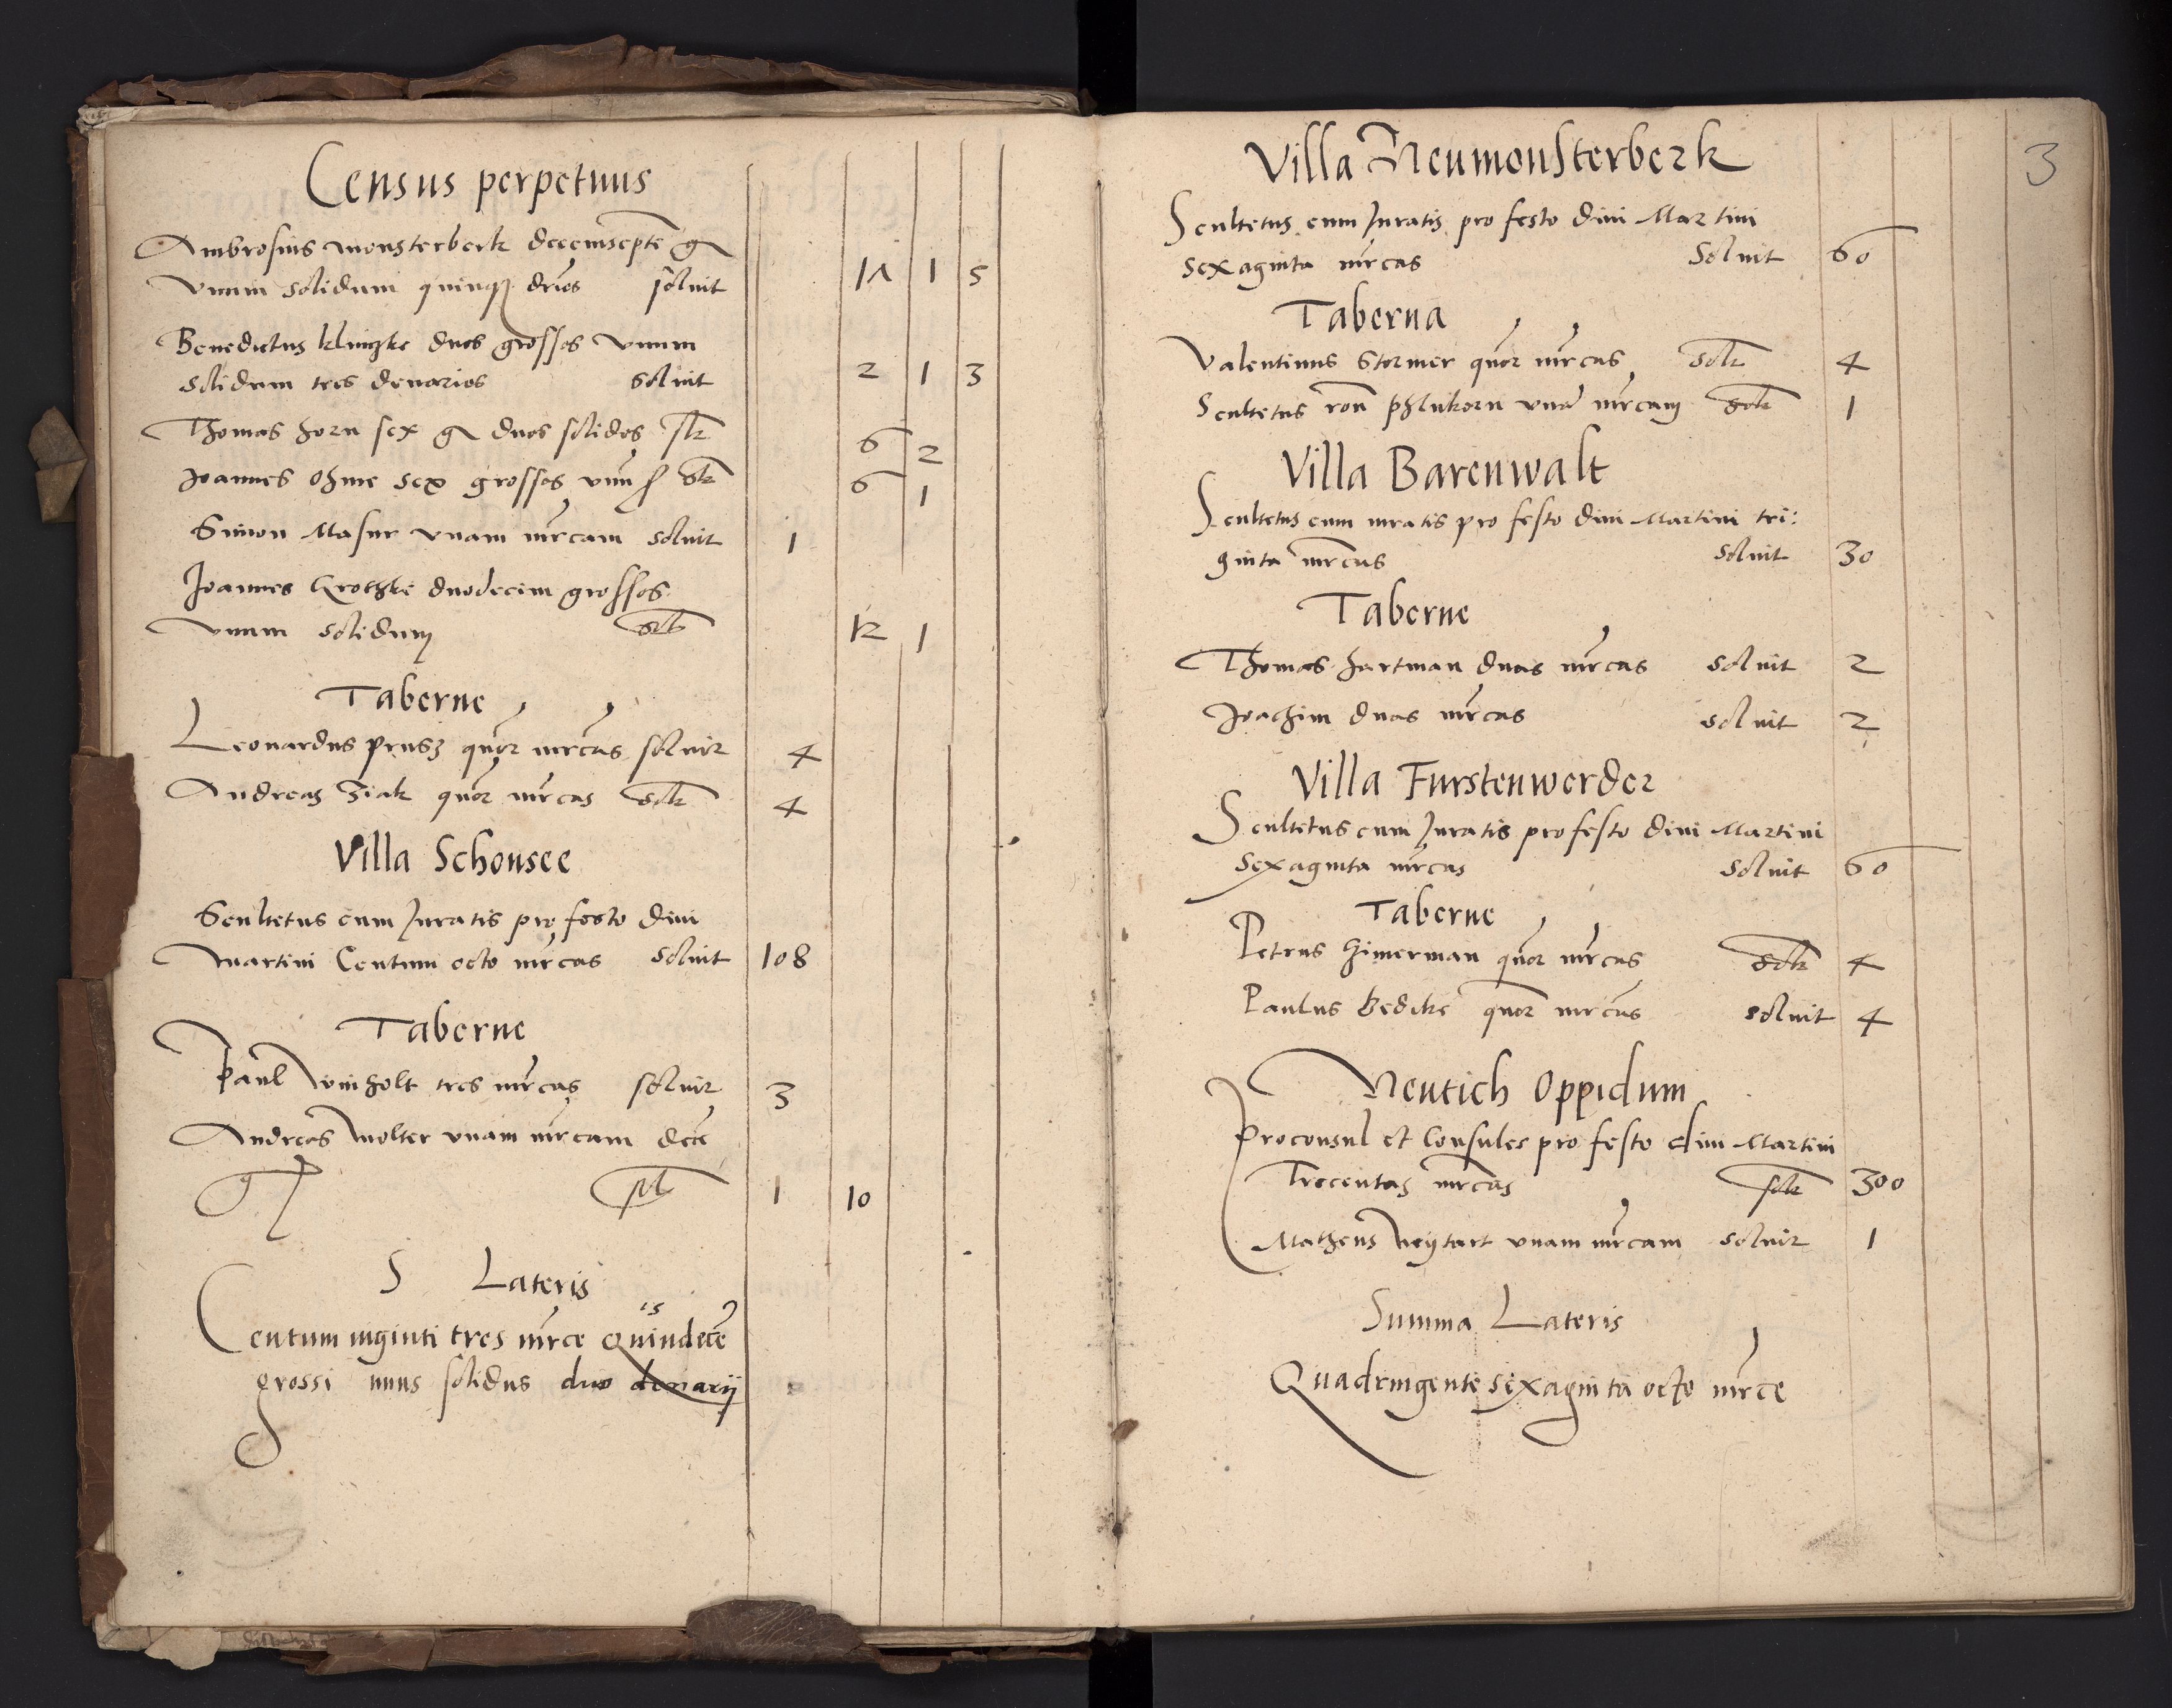 Census perpetuus
Ambrosius Monsterberk decemsepte gr
vnum solidum quinqȝ drios soluit 17 1 5
Benedictus klingke duos grossos vnum
solidum tres denarios soluit 2 1 3
Thomas horn sex gr duos solidos slt 6 2
Joannes ohme sex grossos vnu s slt 6 1
Simon Masur vnam mrcam soluit 1
Joannes Grothke duodecim grossos
vnum solidum slt 12 1
Taberne
Leonardus prusz quor mrcas soluit 4
Andreas ziak quor mrcas solt 4
Villa Schonsee
Scultetus cum Juratis pro festo diui
Martini Centum octo mrcas soluit 108
Taberne
Paul winholt tres mrcas soluit 3
Andreas wolter vnam mrcam dece
gr slt 1 10
S Lateris
15
Centum viginti tres mrce Quindece
grossi unus solidus duo denarij
3
Villa Neumonsterberk
Scultetus cum Juratis pro festo diui Martini
sexaginta mrcas Soluit 60
Taberna
Valentinus Stormer quor mrcas solt 4
Scultetus ron phlukorn vna mrcam solt 1
Villa Barenwalt
Scultetus cum iuratis pro festo diui Martini tri:
ginta mrcas soluit 30
Taberne
Thomas hartman duas mrcas soluit 2
Joachim duas mrcas soluit 2
Villa Furstenwerder
Scultetus cum Juratis pro festo diui Martini
sexaginta mrcas soluit 60
Taberne
Petrus Zimerman quor mrcas solt 4
Paulus bedike quor mrcas soluit 4
Neutich Oppidum
Proconsul et Consules pro festo diui Martini
Trecentas mrcas solt 300
Matheus Neytart vnam mrcam soluit 1
Summa Lateris
Quadringente sexaginta octo mrce